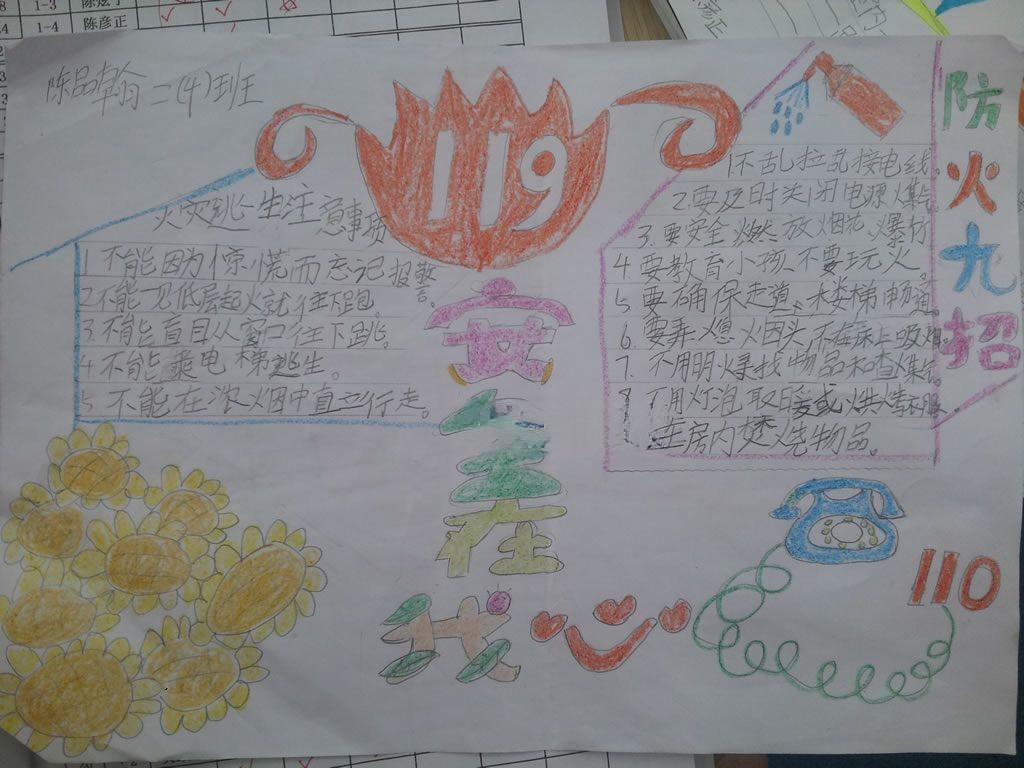 1-3
1-4 陈彦正
陈品翰二(4)班
119
火灾逃生注意事项
1 不能因为惊慌而忘记报警。
2 不能见低层起火就往下跑。
3 不能盲目从窗口往下跳。
4 不能乘电梯逃生。
5 不能在浓烟中直立行走。
安全在我心
防火九招
1 不乱拉乱接电线。
2 要及时关闭电源
3 要安全燃放烟花、爆竹
4 要教育小孩不要玩火。
5 要确保走道、楼梯畅通
6 要弄熄火因头,不在床上吸烟
7 不用明火寻找物品和查
8 不用灯泡取暖或烘烤衣服
在房内焚烧物品。
110